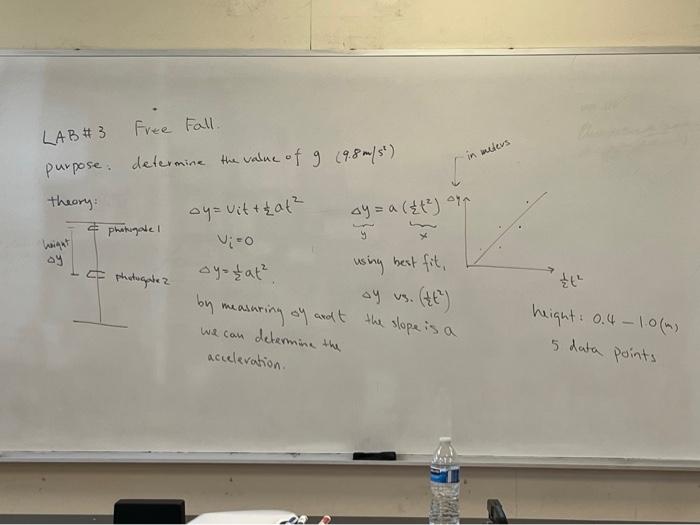 LAB #3 Free Fall.
purpose: determine the value of g (9.8 m/s²)
theory:
photogate 1
height
Δy
photogate 2
Δy = Vit + ½at²
Vi = 0
Δy = ½at².
by measuring Δy and t
we can determine the
acceleration.
Δy = a(½t²)
y x
using best fit,
Δy vs. (½t²)
the slope is a
in meters
Δy
½t²
height: 0.4 – 1.0 (m)
5 data points